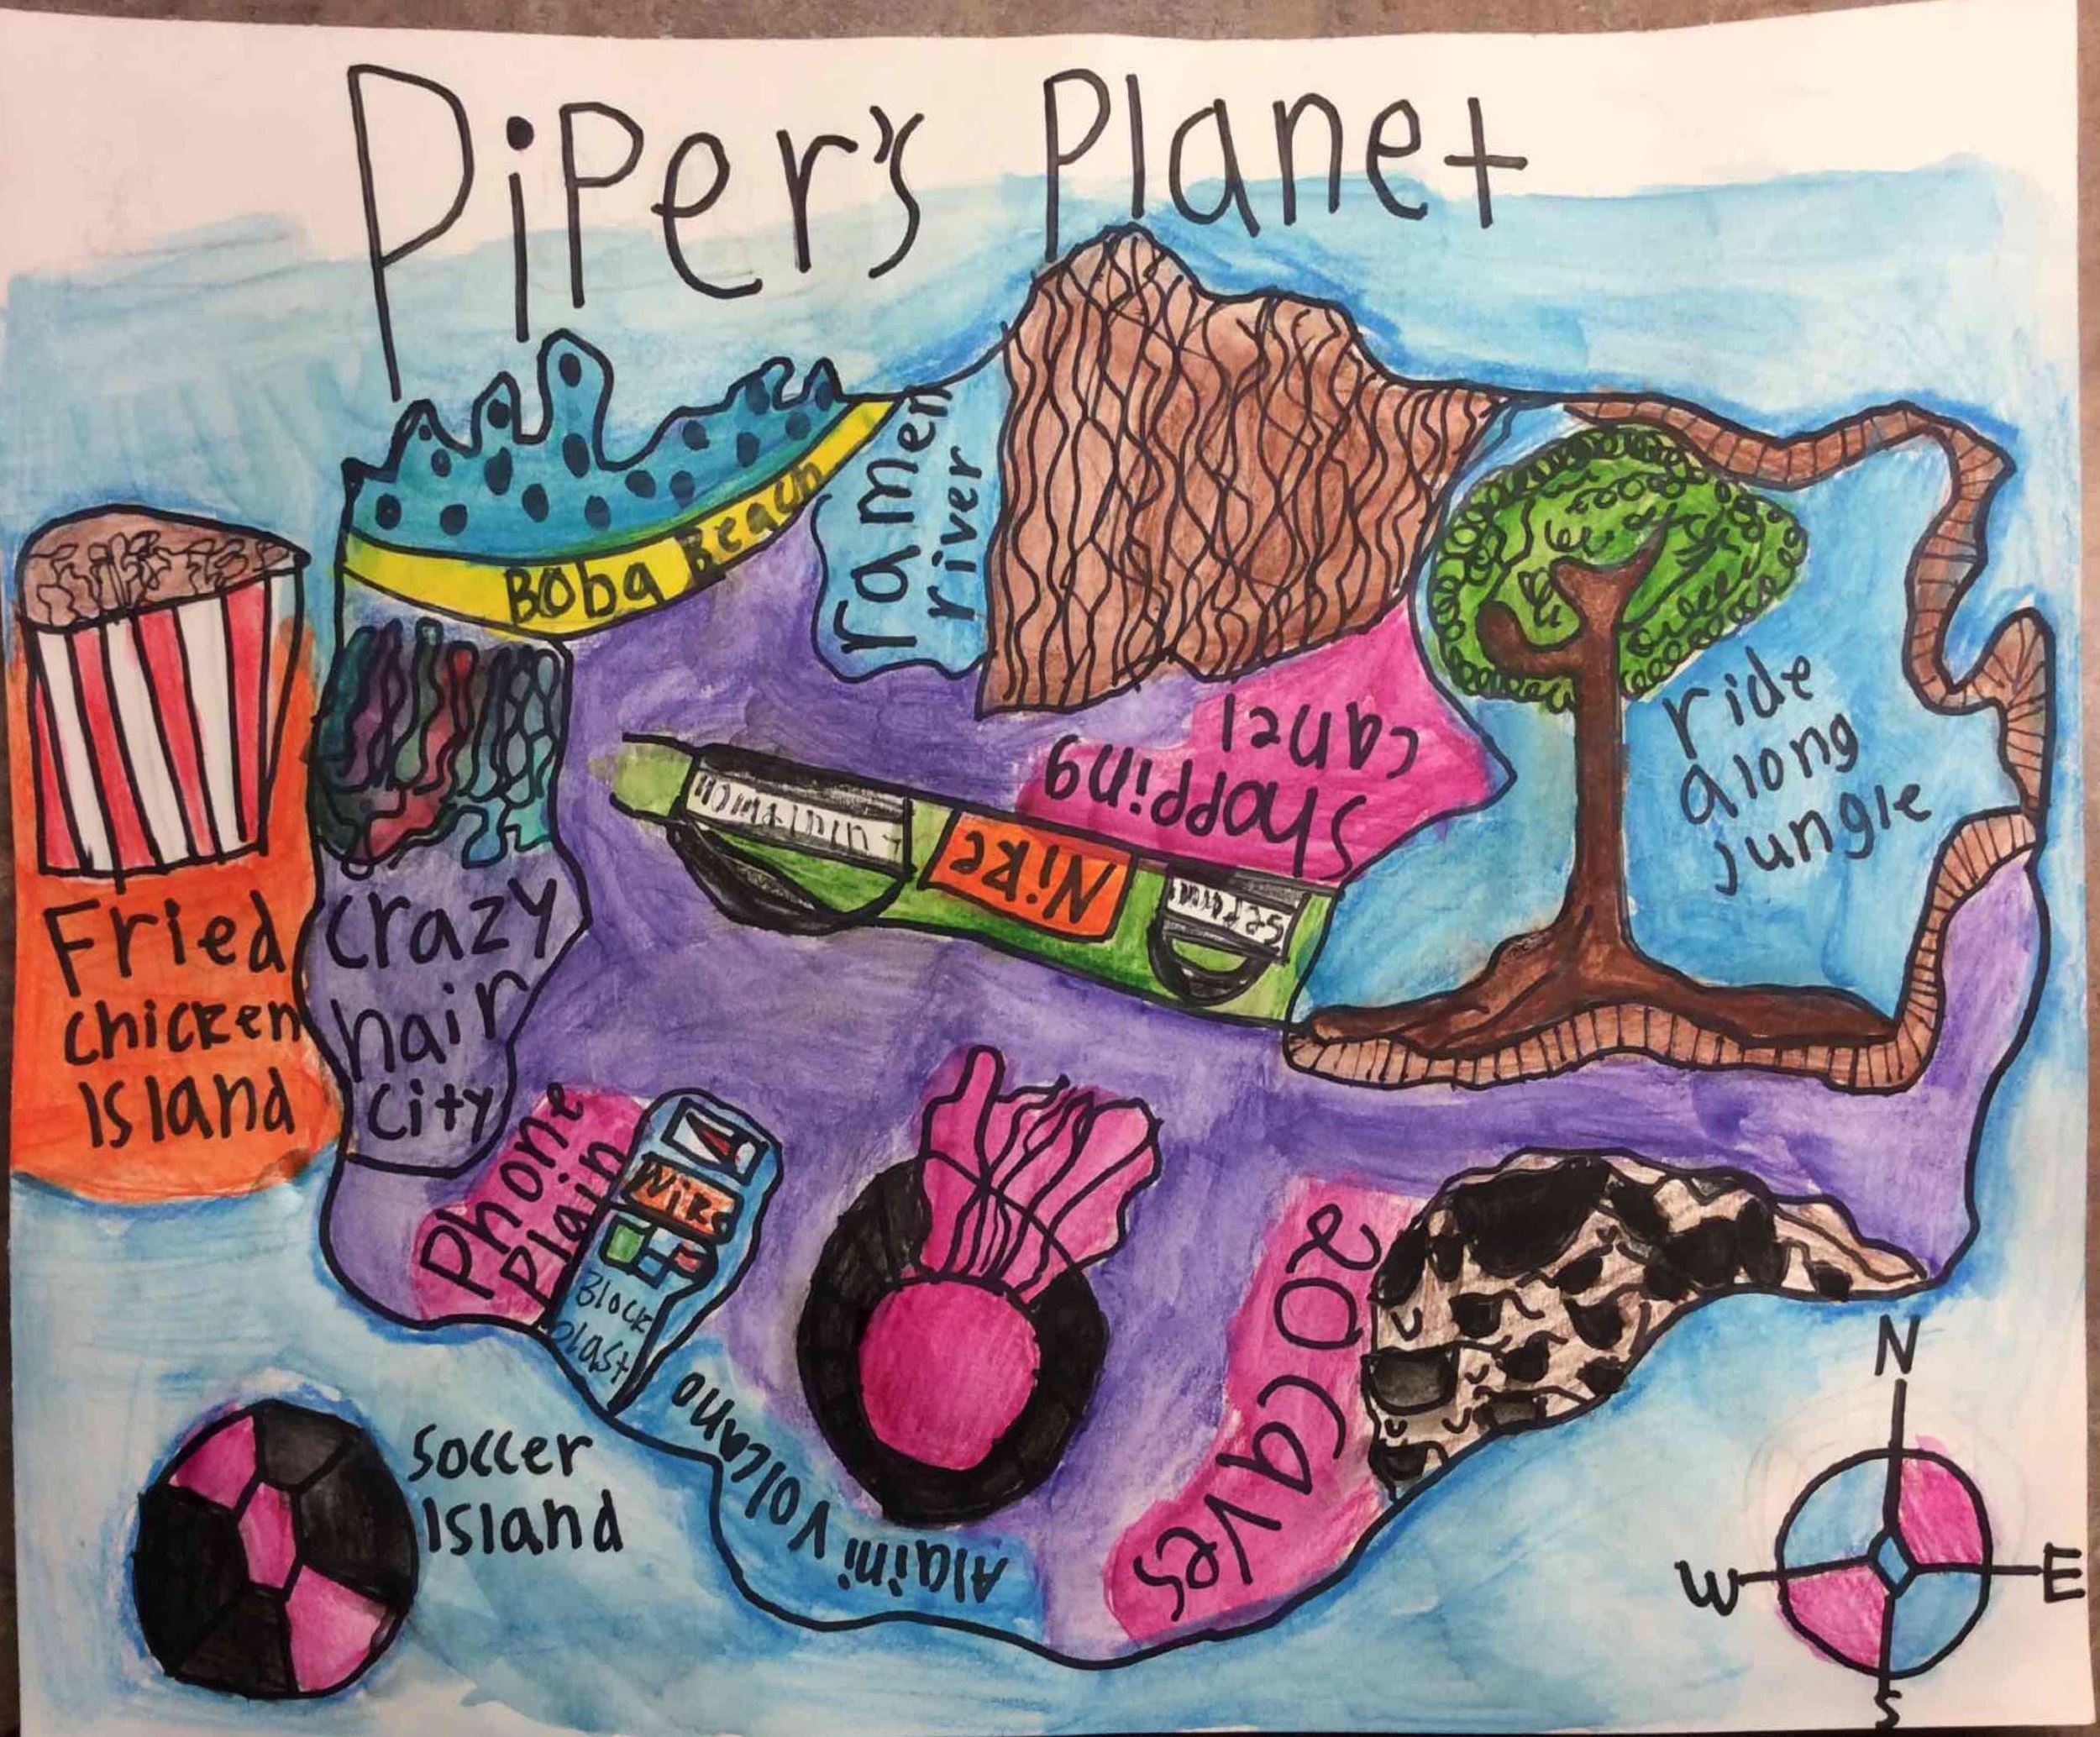 Piper's Planet
Boba Beach
ramen
river
ride
along
jungle
Shopping
canel
Nike
Fried
chicken
Island
crazy
hair
city
Phone
Plain
Nike
Block
blast
Alaini Volcano
20 Caves
Soccer
Island
N
W
E
S